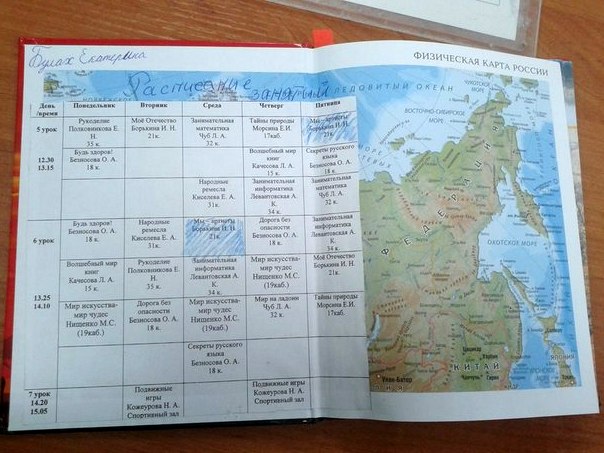 Булах Екатерина
Расписание занятий
День /время
Понедельник
Вторник
Среда
Четверг
Пятница
5 урок
12.30
13.15
Рукоделие
Полковникова Е.
Н.
35 к.
Моё Отечество
Борькина И. Н.
21к.
Занимательная
математика
Чуб Л. А.
32 к.
Тайны природы
Морсина Е.И.
17каб.
Мы – артисты
Борькина И. Н.
21к.
Будь здоров!
Безносова О. А.
18 к.
Волшебный мир
книг
Качесова Л. А.
15 к.
Секреты русского
языка
Безносова О. А.
18 к.
Народные
ремесла
Киселева Е. А.
31к.
Занимательная
информатика
Левантовская А.
К.
34 к.
Занимательная
математика
Чуб Л. А.
32 к.
6 урок
13.25
14.10
Будь здоров!
Безносова О. А.
18 к.
Народные
ремесла
Киселева Е. А.
31к.
Мы – артисты
Борькина И. Н.
21к.
Дорога без
опасности
Безносова О. А.
18 к.
Занимательная
информатика
Левантовская А.
К.
34 к.
Волшебный мир
книг
Качесова Л. А.
15 к.
Рукоделие
Полковникова Е.
Н.
35 к.
Занимательная
информатика
Левантовская А.
К.
34 к.
Мир искусства-
мир чудес
Нищенко М.С.
(19каб.)
Моё Отечество
Борькина И. Н.
21к.
Мир искусства-
мир чудес
Нищенко М.С.
(19каб.)
Дорога без
опасности
Безносова О. А.
18 к.
Мир искусства-
мир чудес
Нищенко М.С.
(19каб.)
Мир на ладони
Чуб Л. А.
32 к.
Тайны природы
Морсина Е.И.
17 каб.
Секреты русского
языка
Безносова О. А.
18 к.
7 урок
14.20
15.05
Подвижные
игры
Кожеурова Н. А.
Спортивный зал
Подвижные игры
Кожеурова Н. А.
Спортивный зал
ФИЗИЧЕСКАЯ КАРТА РОССИИ
ЛЕДОВИТЫЙ ОКЕАН
ЧУКОТСКОЕ
МОРЕ
ВОСТОЧНО-СИБИРСКОЕ
МОРЕ
ФЕДЕРАЦИЯ
ОХОТСКОЕ МОРЕ
КИТАЙ
Улан-Батор
Цицикар
Харбин
Чанчунь
Гирин
ЯПОНИЯ